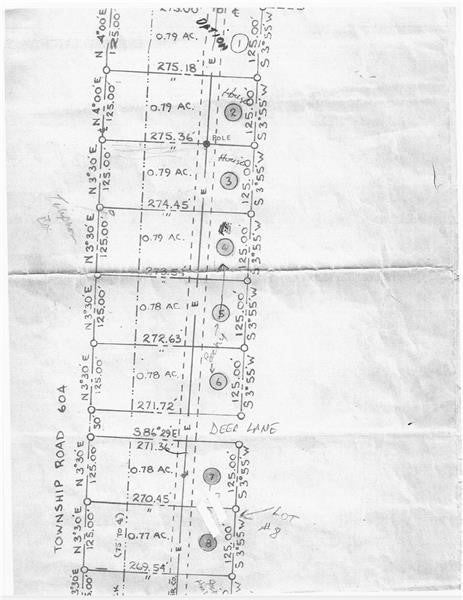 275.00'
0.79 AC.
1
N 4°00'E
125.00'
125.00'
S 3°55'W
275.18'
"
E
House
0.79 AC.
2
N 4°00'E
125.00'
125.00'
S 3°55'W
275.36'
"
POLE
House
0.79 AC.
3
N 3°30'E
125.00'
125.00'
S 3°55'W
274.45'
"
E
0.79 AC.
4
N 3°30'E
125.00'
125.00'
S 3°55'W
273.54'
"
E
0.78 AC.
5
N 3°30'E
125.00'
125.00'
S 3°55'W
272.63'
"
0.78 AC.
6
N 3°30'E
125.00'
125.00'
S 3°55'W
271.72'
"
E
30'
DEER LANE
S 86°29'E
271.36'
0.78 AC.
7
N 3°30'E
125.00'
125.00'
S 3°55'W
270.45'
"
LOT
#8
0.77 AC.
8
N 3°30'E
125.00'
125.00'
S 3°55'W
(75 TO ¢)
E
269.54'
"
TOWNSHIP ROAD 604